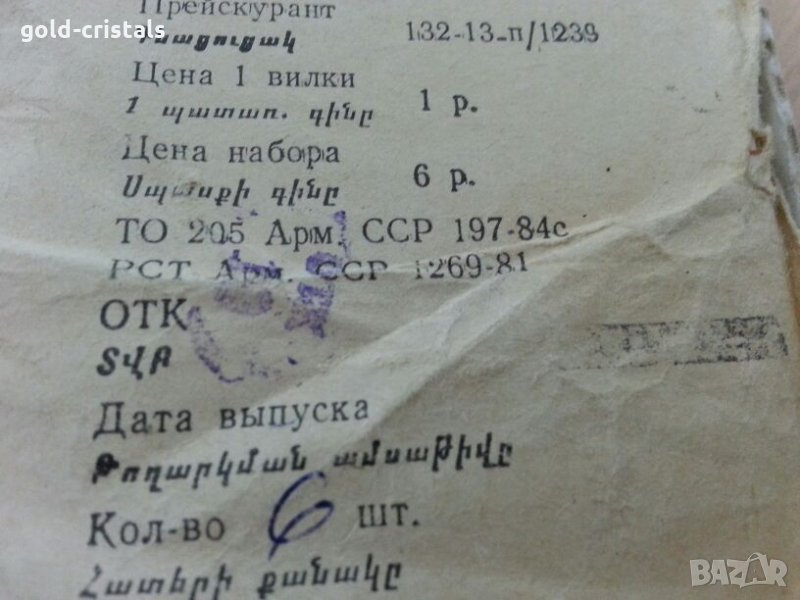 gold-cristals
Прейскурант
132-13-п/1239
Գնացուցակ
Цена 1 вилки
1 պատառ. գինը
1 р.
Цена набора
Սպասքի գինը
6 р.
ТО 205 Арм. ССР 197-84с
РСТ Арм. ССР 1269-81
ОТК
ՏՎԲ
Дата выпуска
Թողարկման ամսաթիվը
Кол-во 6 шт.
Հատերի քանակը
BAZAR